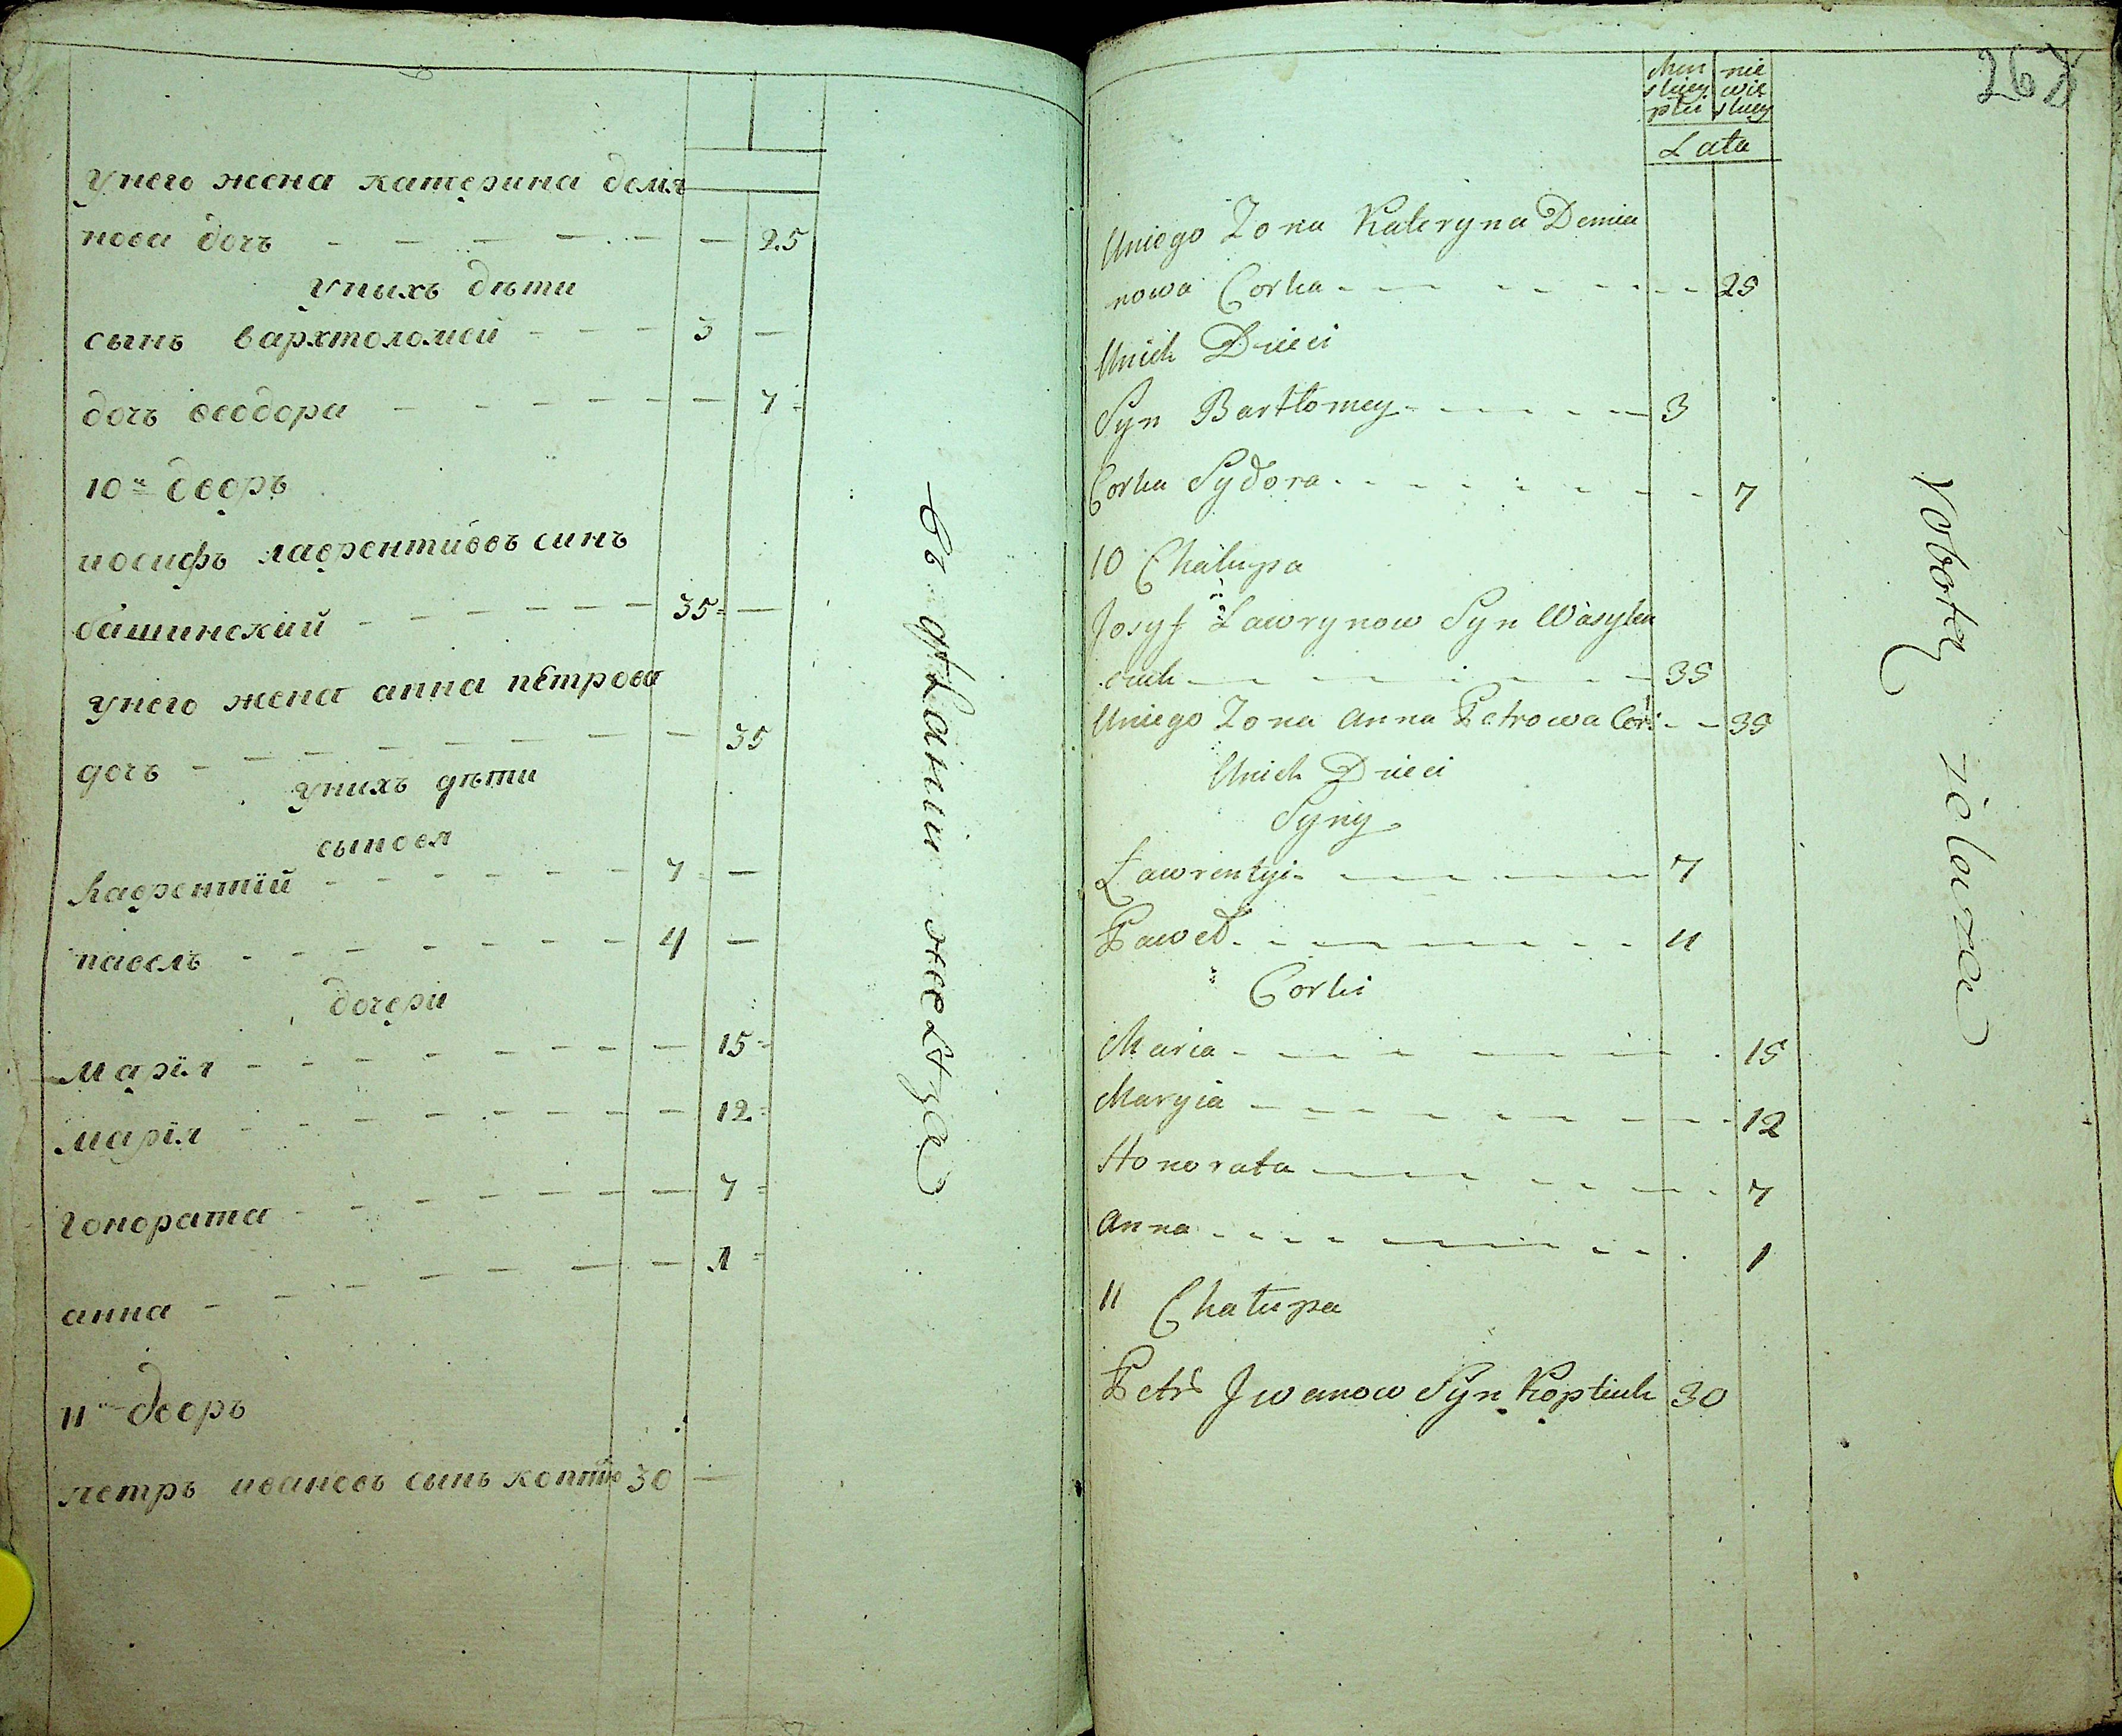 унего жена катерина демя
нова дочь 25
уныхъ дѣти
сынъ вархтоломей 3
дочь ѳеодора 7
10й дворъ
иосифъ лаврентиевъ синъ
башинский 35
унего жена анна петрова
дочь 35
унихъ дѣти
сыновя
Лаврентий 7
павелъ 4
дочери
Марїя 15
марїя 12
гонората 7
анна 1
11й дворъ
петръ ивановъ сынъ коптю 30
267
Men nie
skiey wie
płci skiey
Lata
Uniego Zona Kateryna Demia
nowa Corka 25
Unich Dzieci
Syn Bartłomey 3
Corka Sydora 7
10 Chałupa
Josyf Ławrynow Syn Wasylu
Uniego Zona Anna Petrowa Cor: 35
35
Unich Dzieci
Syny
Ławrentyi 7
Paweł 4
Corki
Maria 15
Maryia 12
Honorata 7
Anna 1
11 Chałupa
Petr Jwanow Syn Koptiuk 30